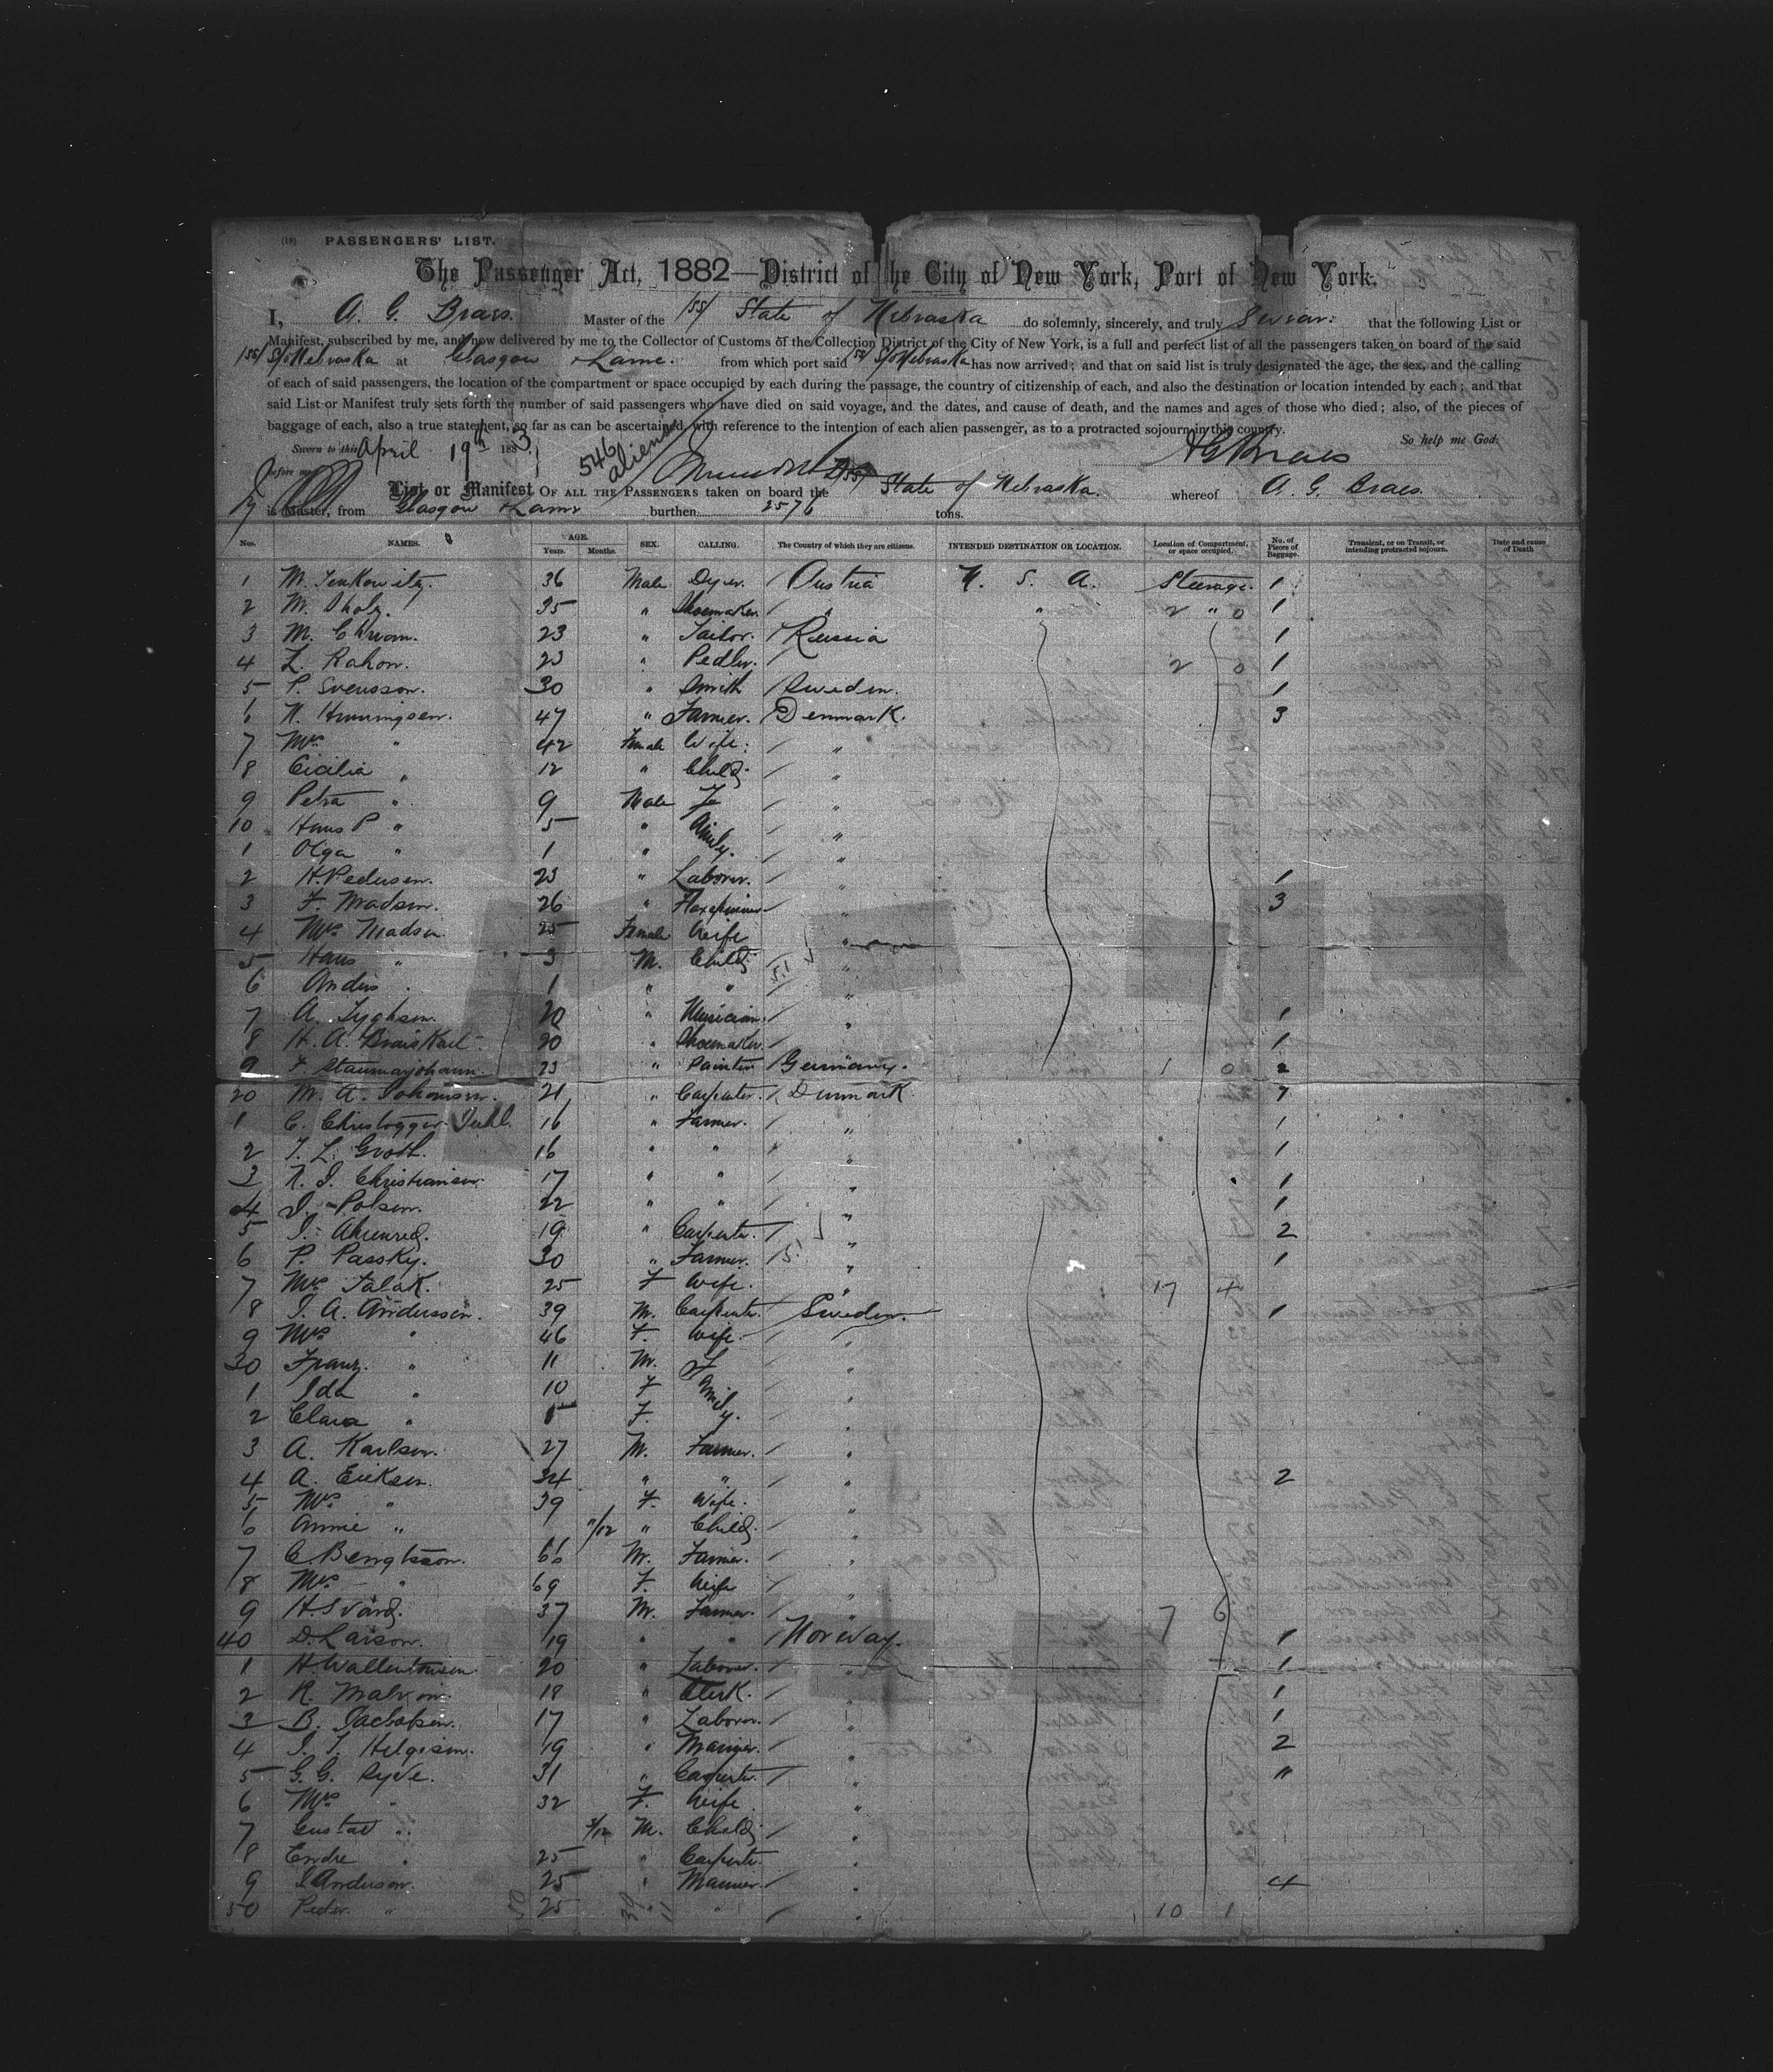 (10) PASSENGERS' LIST.
The Passenger Act, 1882—District of the City of New York, Port of New York.
I, A. G. Braes. Master of the /SS/ State of Nebraska do solemnly, sincerely, and truly Swear: that the following List or
Manifest, subscribed by me, and now delivered by me to the Collector of Customs of the Collection District of the City of New York, is a full and perfect list of all the passengers taken on board of the said
/SS/ S/o Nebraska at Glasgow & Larne. from which port said /SS/ S/o Nebraska has now arrived; and that on said list is truly designated the age, the sex, and the calling
of each of said passengers, the location of the compartment or space occupied by each during the passage, the country of citizenship of each, and also the destination or location intended by each; and that
said List or Manifest truly sets forth the number of said passengers who have died on said voyage, and the dates, and cause of death, and the names and ages of those who died; also, of the pieces of
baggage of each, also a true statement, so far as can be ascertained, with reference to the intention of each alien passenger, as to a protracted sojourn in this country.
Sworn to this April 19th 1883 546 aliens So help me God:
before me AG Braes
List or Manifest OF ALL THE PASSENGERS taken on board the /SS/ State of Nebraska. whereof A. G. Braes.
is Master, from Glasgow & Larne burthen 2576 tons.
Nos. NAMES. AGE. Years. Months. SEX. CALLING. The Country of which they are citizens. INTENDED DESTINATION OR LOCATION. Location of Compartment, or space occupied. No. of Pieces of Baggage. Transient, or on Transit, or intending protracted sojourn. Date and cause of Death
1 36 Male Dyer. Austria U. S. A. Steerage. 1
2 35 " Shoemaker. " " 2 " 0 1
3 23 " Tailor. Russia 1
4 23 " Pedler. 2 0 1
5 P. Svensson. 30 " Smith Sweden. 1
6 N. Henningsen. 47 " Farmer. Denmark. 3
7 Mrs " 42 Female Wife. "
8 Cicilia " 12 " Child. "
9 Petra " 9 Male Family. "
10 Hans P " 5 " "
1 Olga " 1 " "
2 H. Pedersen. 23 " Laborer. " 1
3 F. Madsen. 26 " " 3
4 Mrs Madsen 25 Female Wife "
5 Hans " 3 M. Child "
6 Anders " 1 " " "
7 20 " Musician. " 1
8 20 " Shoemaker. 1
9 23 " Painter Germany. 1 0 2
20 M. A. Johansen. 21 " Carpenter. Denmark 7
1 16 " Farmer. " 1
2 T. L. Groth. 16 " " " 1
3 N. J. Christiansen. 17 " " " 1
4 J. Polsen. 22 " " " 1
5 19 " Carpenter. " 2
6 P. Passky. 30 " Farmer. " 1
7 Mrs Talak. 25 F Wife. " 17 4
8 J. A. Andersson. 39 M. Carpenter. Sweden. 1
9 Mrs " 46 F. Wife "
30 Franz. " 11 M. Family. "
1 Ida " 10 F "
2 Clara " F. "
3 A. Karlson. 27 M. Farmer. "
4 A. Eriksen. 34 " " " 2
5 Mrs " 39 F. Wife. "
6 Annie " 11/12 " Child. "
7 C. Bengtsson. 66 M. Farmer. "
8 Mrs " 69 F. Wife "
9 H. Svärd. 37 M. Farmer. " 7 6
40 D. Larson. 19 " " Norway. 1
1 20 " Laborer. " 1
2 18 " Clerk. " 1
3 B. Jacobsen. 17 " Laborer. " 1
4 J. T. Helgesen. 19 " Mariner. " 2
5 G. G. Ryve. 31 " Carpenter. " "
6 Mrs " 32 F. Wife "
7 Gustav " M. Child "
8 Endre " 25 " Carpenter. "
9 J Anderson. 25 " Mariner. 4
50 Peder. " 25 " " " 10 1